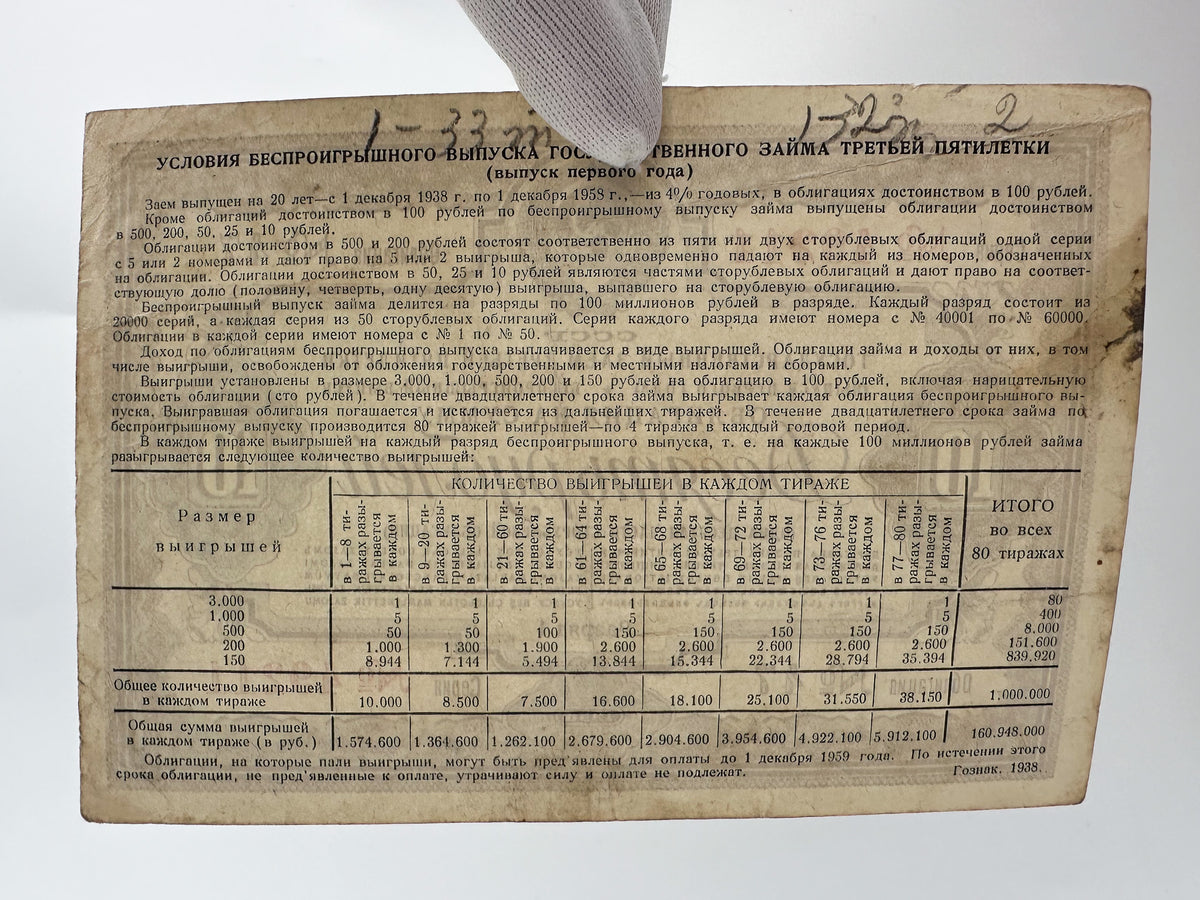 1-33
1-32 2
УСЛОВИЯ БЕСПРОИГРЫШНОГО ВЫПУСКА ГОС ТВЕННОГО ЗАЙМА ТРЕТЬЕЙ ПЯТИЛЕТКИ
(выпуск первого года)
Заем выпущен на 20 лет—с 1 декабря 1938 г. по 1 декабря 1958 г.,—из 4% годовых, в облигациях достоинством в 100 рублей.
Кроме облигаций достоинством в 100 рублей по беспроигрышному выпуску займа выпущены облигации достоинством
в 500, 200, 50, 25 и 10 рублей.
Облигации достоинством в 500 и 200 рублей состоят соответственно из пяти или двух сторублевых облигаций одной серии
с 5 или 2 номерами и дают право на 5 или 2 выигрыша, которые одновременно падают на каждый из номеров, обозначенных
на облигации. Облигации достоинством в 50, 25 и 10 рублей являются частями сторублевых облигаций и дают право на соответ-
ствующую долю (половину, четверть, одну десятую) выигрыша, выпавшего на сторублевую облигацию.
Беспроигрышный выпуск займа делится на разряды по 100 миллионов рублей в разряде. Каждый разряд состоит из
20000 серий, а каждая серия из 50 сторублевых облигаций. Серии каждого разряда имеют номера с № 40001 по № 60000.
Облигации в каждой серии имеют номера с № 1 по № 50.
Доход по облигациям беспроигрышного выпуска выплачивается в виде выигрышей. Облигации займа и доходы от них, в том
числе выигрыши, освобождены от обложения государственными и местными налогами и сборами.
Выигрыши установлены в размере 3.000, 1.000, 500, 200 и 150 рублей на облигацию в 100 рублей, включая нарицательную
стоимость облигации (сто рублей). В течение двадцатилетнего срока займа выигрывает каждая облигация беспроигрышного вы-
пуска. Выигравшая облигация погашается и исключается из дальнейших тиражей. В течение двадцатилетнего срока займа по
беспроигрышному выпуску производится 80 тиражей выигрышей—по 4 тиража в каждый годовой период.
В каждом тираже выигрышей на каждый разряд беспроигрышного выпуска, т. е. на каждые 100 миллионов рублей займа
разыгрывается следующее количество выигрышей:
Размер выигрышей
КОЛИЧЕСТВО ВЫИГРЫШЕЙ В КАЖДОМ ТИРАЖЕ
в 1—8 ти-
ражах разы-
грывается
в каждом
в 9—20 ти-
ражах разы-
грывается
в каждом
в 21—60 ти-
ражах разы-
грывается
в каждом
в 61—64 ти-
ражах разы-
грывается
в каждом
в 65—68 ти-
ражах разы-
грывается
в каждом
в 69—72 ти-
ражах разы-
грывается
в каждом
в 73—76 ти-
ражах разы-
грывается
в каждом
в 77—80 ти-
ражах разы-
грывается
в каждом
ИТОГО
во всех
80 тиражах
3.000 1 1 1 1 1 1 1 1 80
1.000 5 5 5 5 5 5 5 5 400
500 50 50 100 150 150 150 150 150 8.000
200 1.000 1.300 1.900 2.600 2.600 2.600 2.600 2.600 151.600
150 8.944 7.144 5.494 13.844 15.344 22.344 28.794 35.394 839.920
Общее количество выигрышей
в каждом тираже 10.000 8.500 7.500 16.600 18.100 25.100 31.550 38.150 1.000.000
Общая сумма выигрышей
в каждом тираже (в руб.) 1.574.600 1.364.600 1.262.100 2.679.600 2.904.600 3.954.600 4.922.100 5.912.100 160.948.000
Облигации, на которые пали выигрыши, могут быть пред'явлены для оплаты до 1 декабря 1959 года. По истечении этого
срока облигации, не пред'явленные к оплате, утрачивают силу и оплате не подлежат. Гознак. 1938.